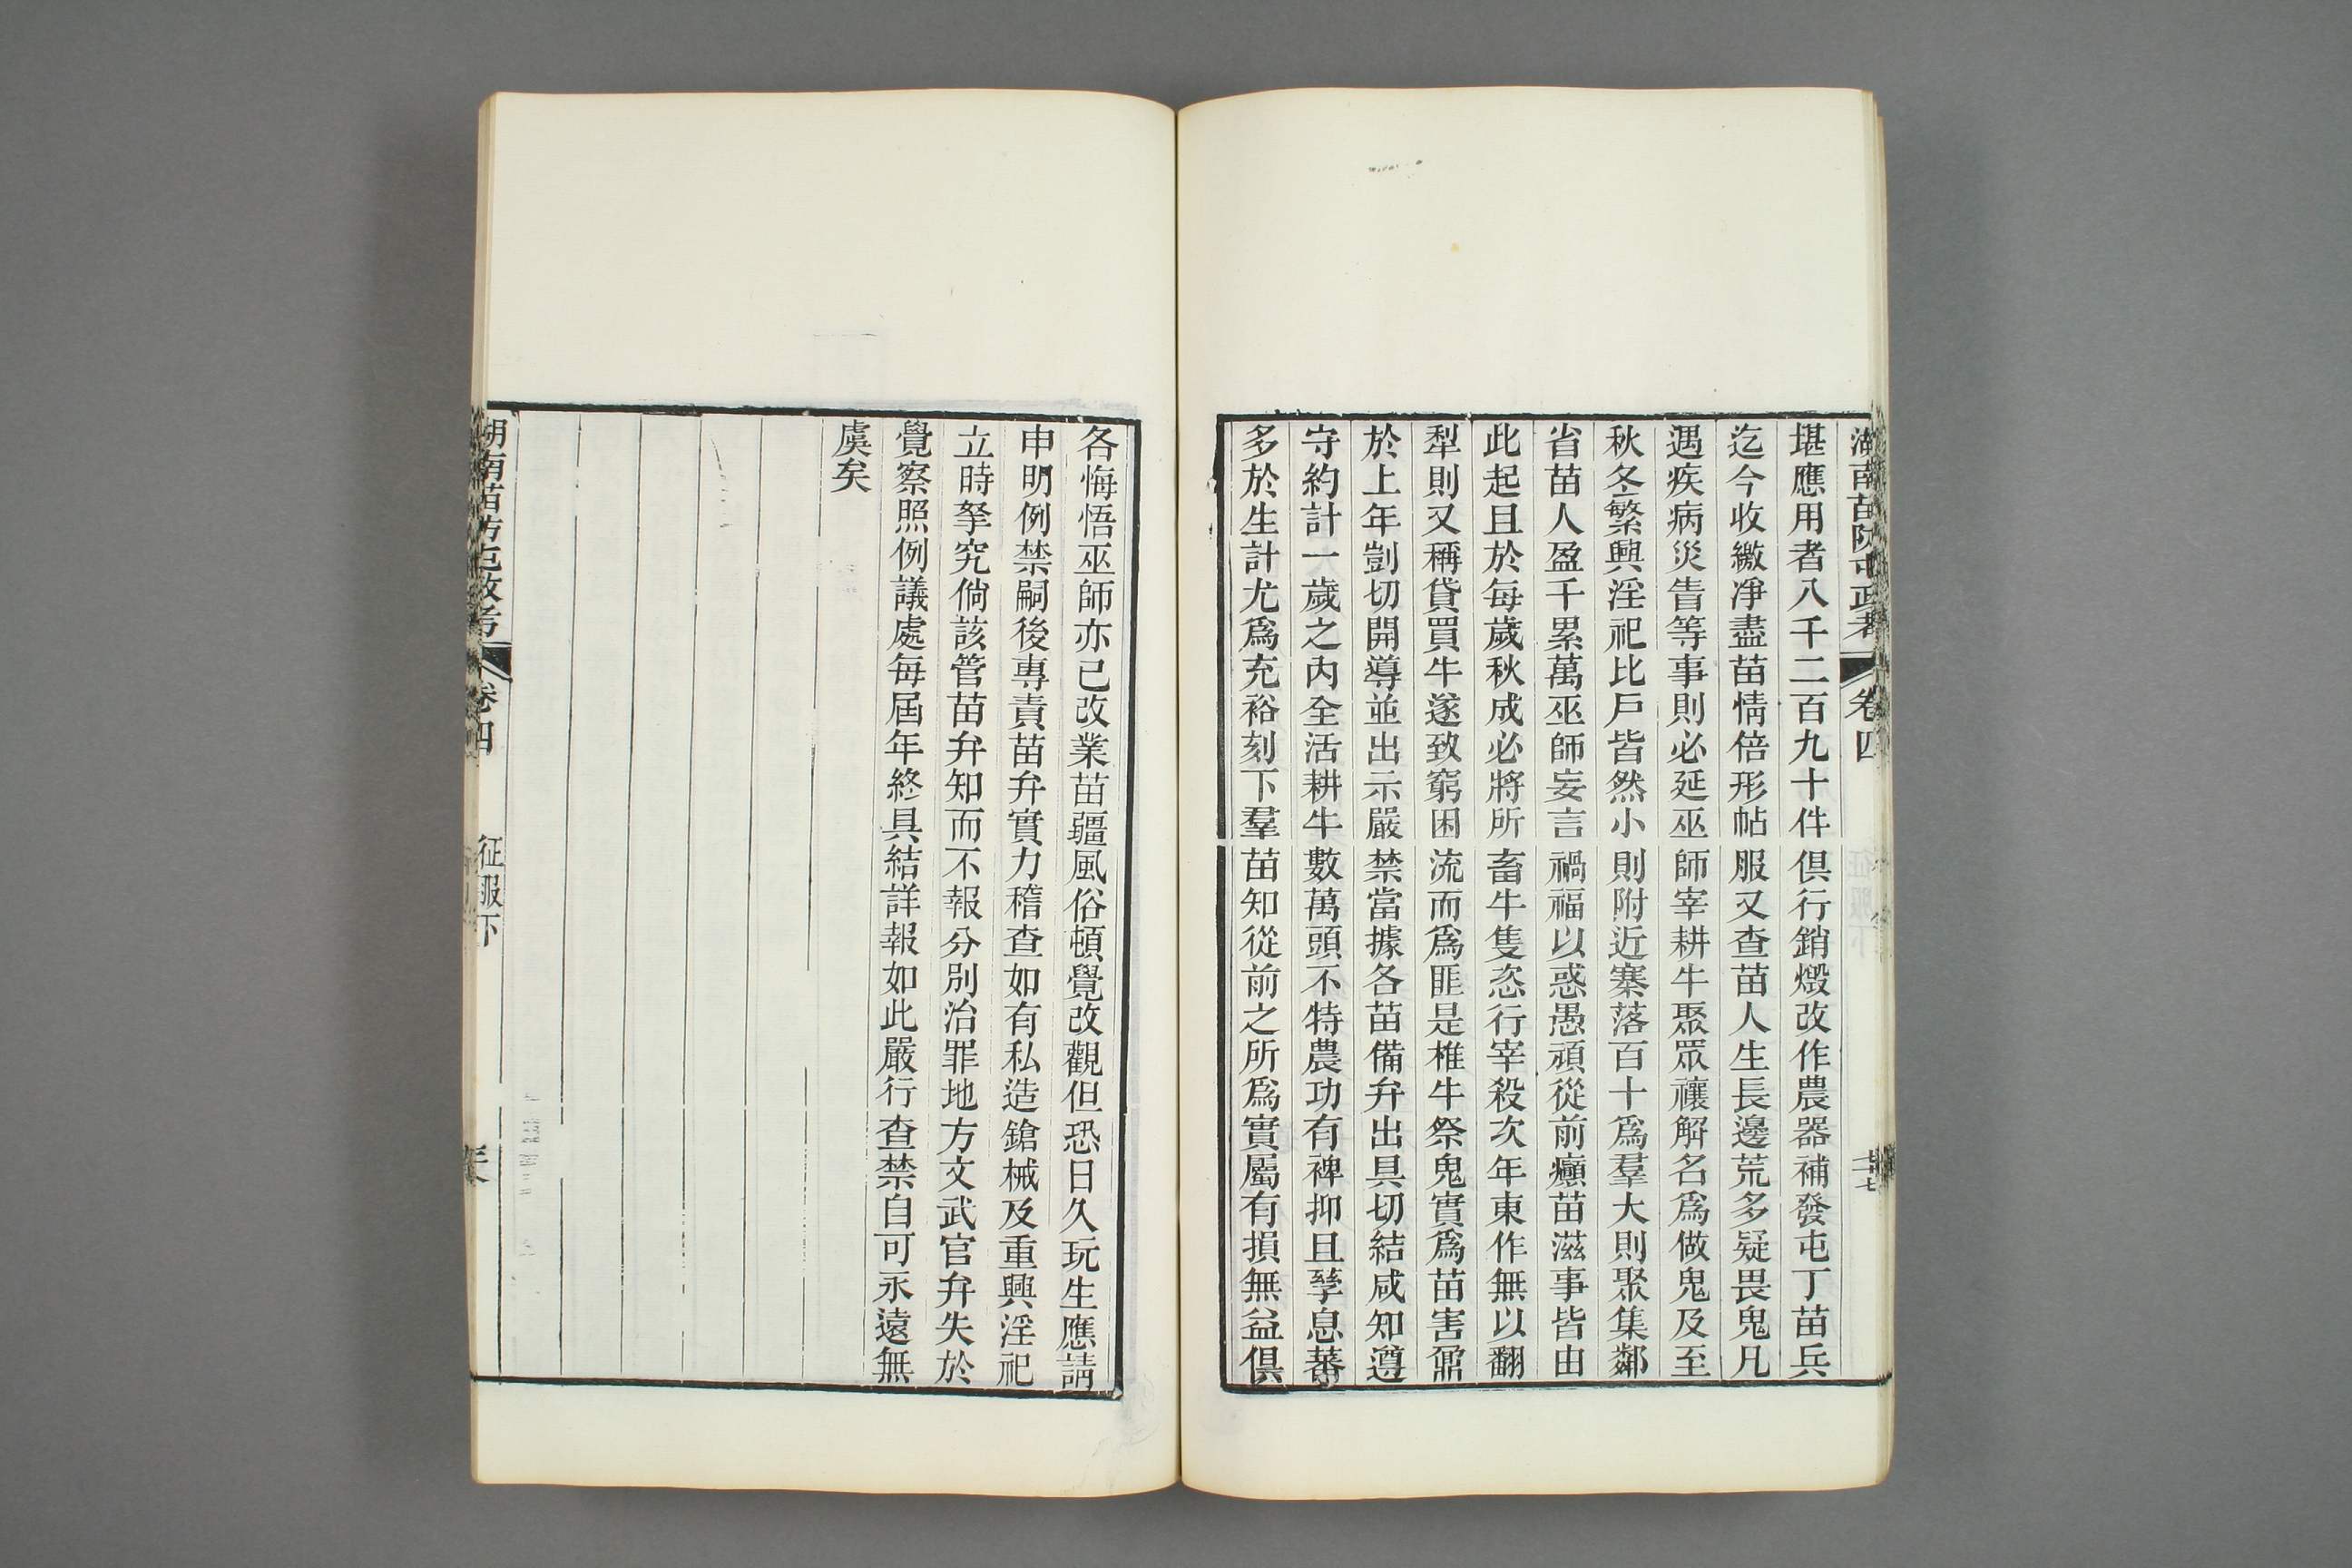 湖南苗防屯政考 卷四
堪應用者八千二百九十件俱行銷燬改作農器補發屯丁苗兵
迄今收繳凈盡苗情倍形帖服又查苗人生長邊荒多疑畏鬼凡
遇疾病災眚等事則必延巫師宰耕牛聚眾禳解名爲做鬼及至
秋冬繁興淫祀比戶皆然小則附近寨落百十爲羣大則聚集鄰
省苗人盈千累萬巫師妄言禍福以惑愚頑從前癲苗滋事皆由
此起且於每歲秋成必將所畜牛隻恣行宰殺次年東作無以翻
犁則又稱貸買牛遂致窮困流而爲匪是椎牛祭鬼實爲苗害鼐
於上年剴切開導並出示嚴禁當據各苗備弁出具切結咸知遵
守約計一歲之內全活耕牛數萬頭不特農功有裨抑且孳息蕃
多於生計尤爲充裕刻下羣苗知從前之所爲實屬有損無益俱
各悔悟巫師亦已改業苗疆風俗頓覺改觀但恐日久玩生應請
申明例禁嗣後專責苗弁實力稽查如有私造鎗械及重興淫祀
立時拏究倘該管苗弁知而不報分別治罪地方文武官弁失於
覺察照例議處每屆年終具結詳報如此嚴行查禁自可永遠無
虞矣
湖南苗防屯政考 卷四 征服下